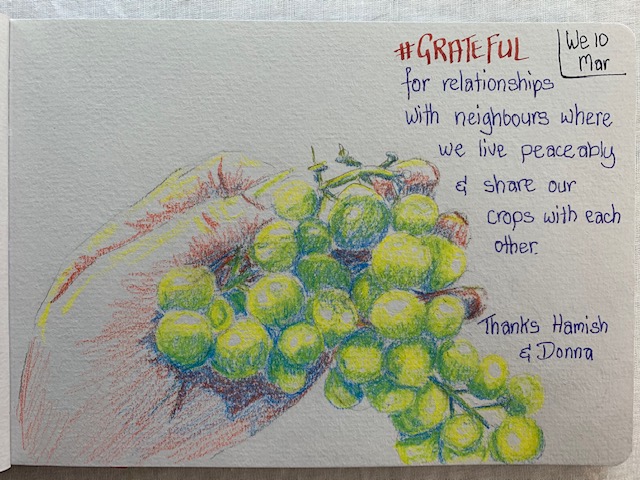 #GRATEFUL
We 10
Mar
for relationships
with neighbours where
we live peaceably
& share our
crops with each
other.
Thanks Hamish
& Donna